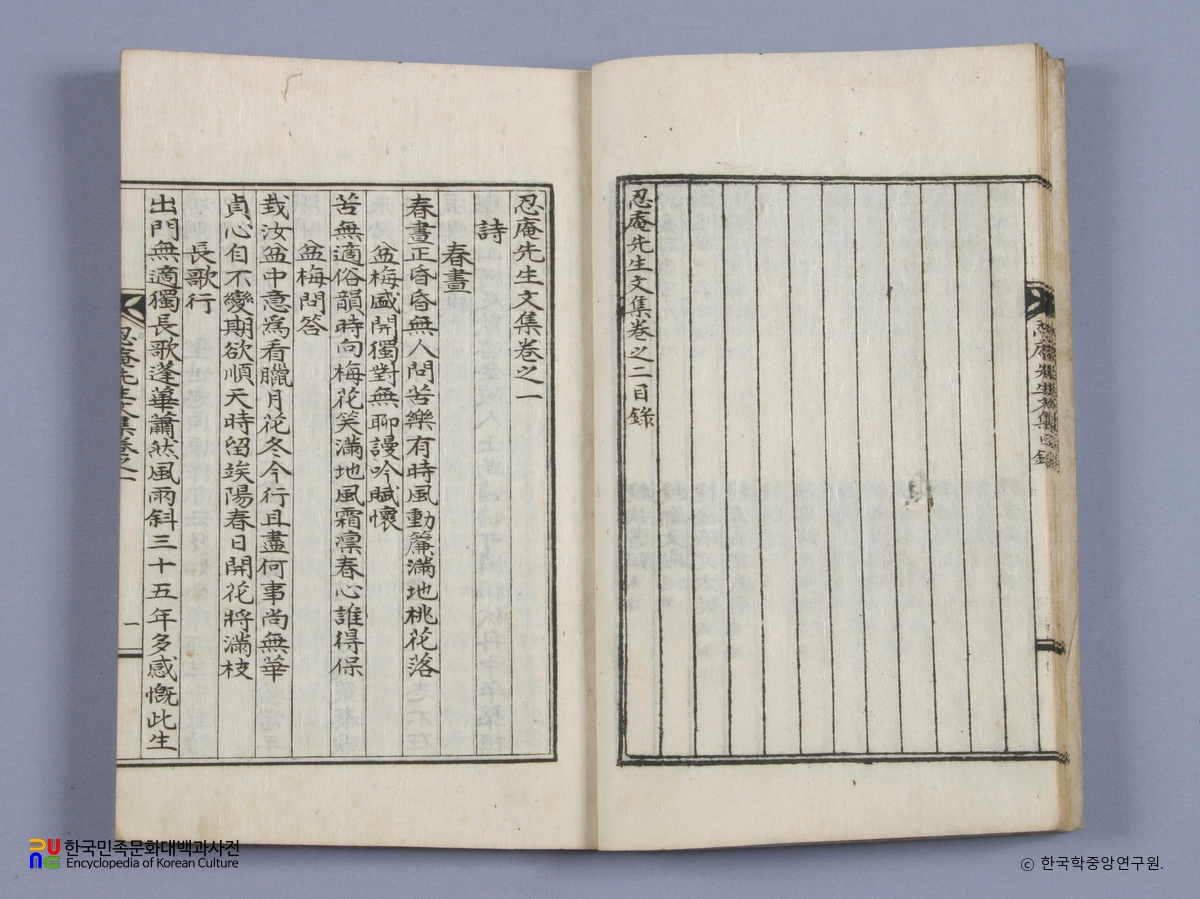 忍庵先生文集目錄
忍庵先生文集卷之二目錄
忍庵先生文集卷之一
詩
春晝
春晝正昏昏無人問苦樂有時風動簾滿地桃花落
盆梅盛開獨對無聊謾吟賦懷
苦無適俗韻時向梅花笑滿地風霜凛春心誰得保
盆梅問答
㦲汝盆中意爲看臘月花冬今行且盡何事尚無華
貞心自不變期欲順天時留竢陽春日開花將滿枝
長歌行
出門無適獨長歌蓬蓽蕭然風雨斜三十五年多感慨此生
忍庵先生文集卷之一
一
한국민족문화대백과사전
Encyclopedia of Korean Culture
ⓒ 한국학중앙연구원.